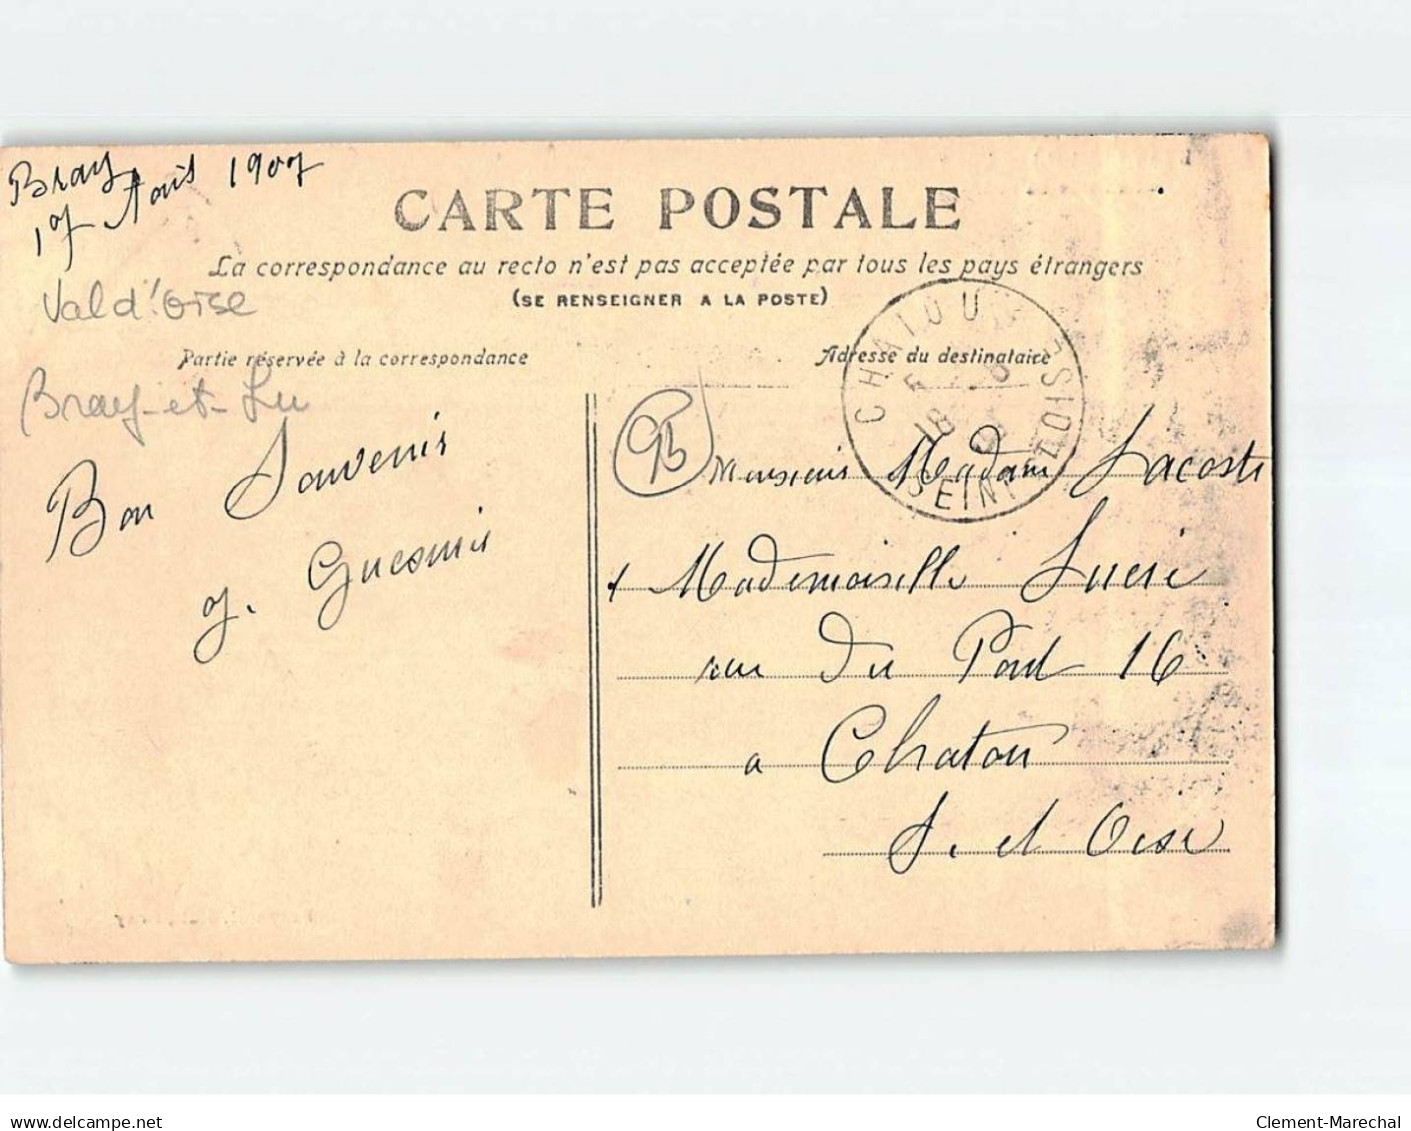 Bray
17 Août 1907
CARTE POSTALE
La correspondance au recto n'est pas acceptée par tous les pays étrangers
(SE RENSEIGNER A LA POSTE)
Val d'Oise
Partie réservée à la correspondance
Adresse du destinataire
Bray-et-Lu
Bon Souvenir
Guesnier
CHATOU
18
SEINE-ET-OISE
Monsieur Madame Lacoste
Mademoiselle Lucie
rue Du Pont 16
a Chatou
S. et Oise
www.delcampe.net
Clement-Marechal